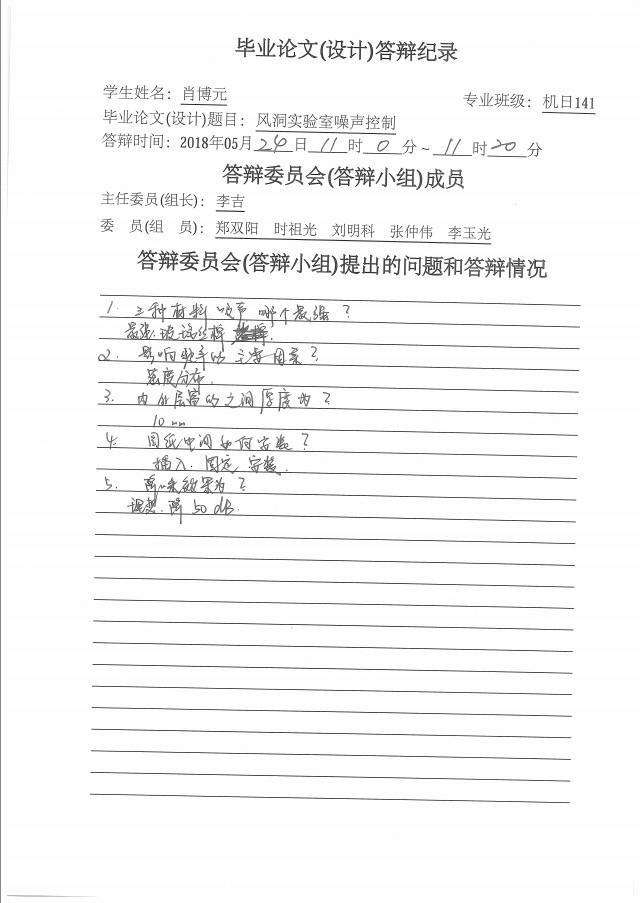 毕业论文(设计)答辩纪录
学生姓名：肖博元 专业班级：机日141
毕业论文(设计)题目：风洞实验室噪声控制
答辩时间：2018年05月24日11时0分~11时20分
答辩委员会(答辩小组)成员
主任委员(组长)：李吉
委 员(组 员)：郑双阳 时祖光 刘明科 张仲伟 李玉光
答辩委员会(答辩小组)提出的问题和答辩情况
1. 三种材料吸声哪个最强？
最强：玻璃丝棉.
2. 影响效率的主要因素？
密度分布.
3. 内外层窗的之间厚度为？
10mm
4. 图纸中间如何安装？
插入.固定.安装.
5. 降噪效果为？
降50dB.